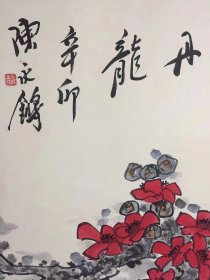 丹
龍
辛卯
陳永鏘